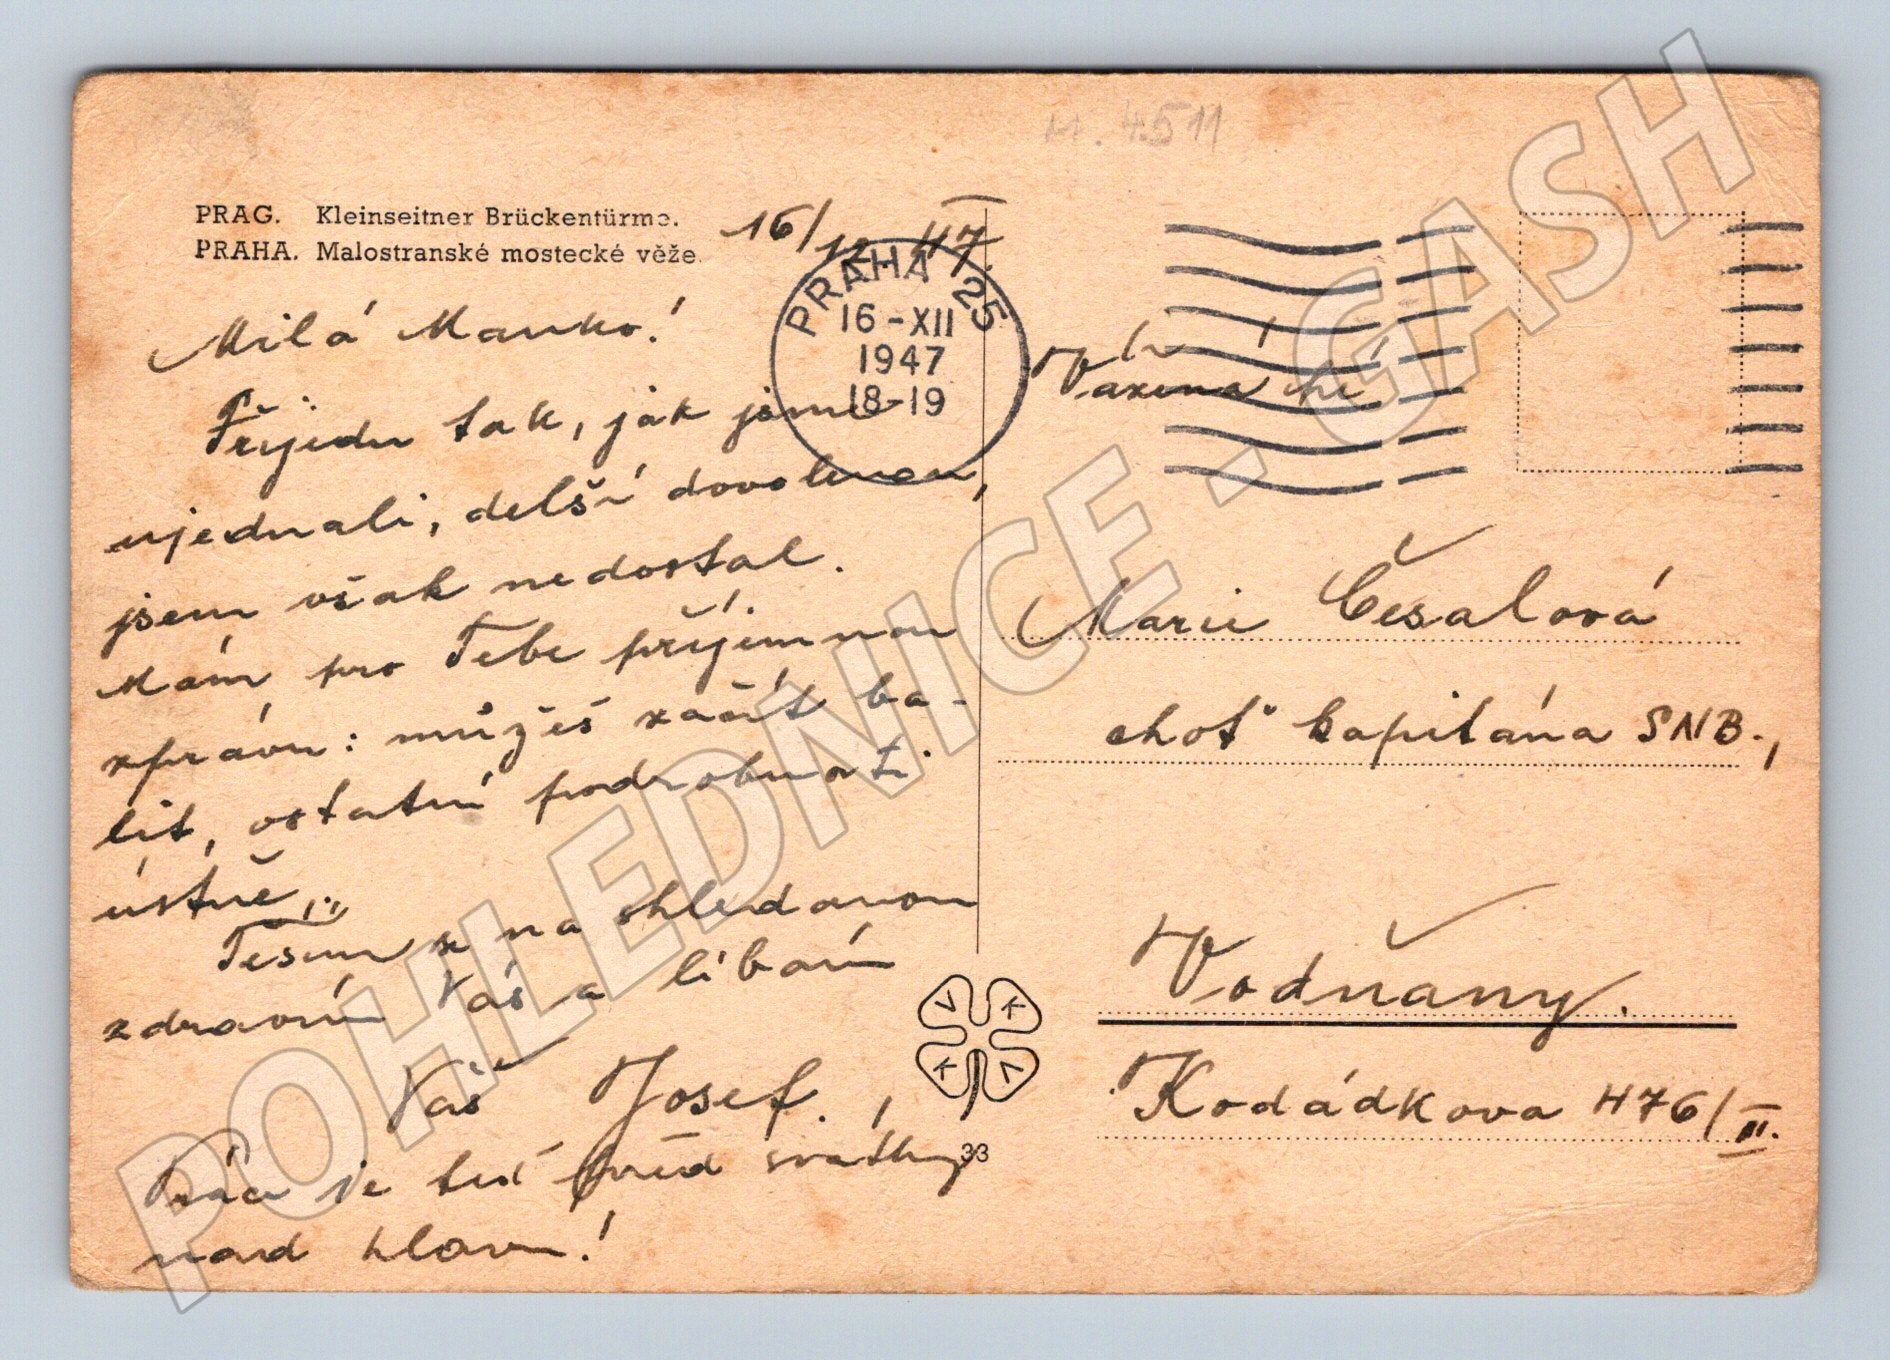 M. 4511
PRAG. Kleinseitner Brückentürme.
PRAHA. Malostranské mostecké věže.
16/12. 47.
PRAHA 25
16-XII
1947
18-19
Milá Manko!
Přijedu tak, jak jsme
ujednali, delší dovolenou,
jsem však nedostal.
Mám pro Tebe příjemnou
zprávu: můžeš začít ba-
lit, ostatní podrobnosti
ústně.
Těším se na shledanou
zdravím Vás a líbám
Váš Josef.,
Práce je teď před svátky
nad hlavu!
Vážená pí
Marie Česalová
choť kapitána SNB.,
Vodňany.
Kodádkova 476/II.
V K
K V
33
POHLEDNICE - GASH